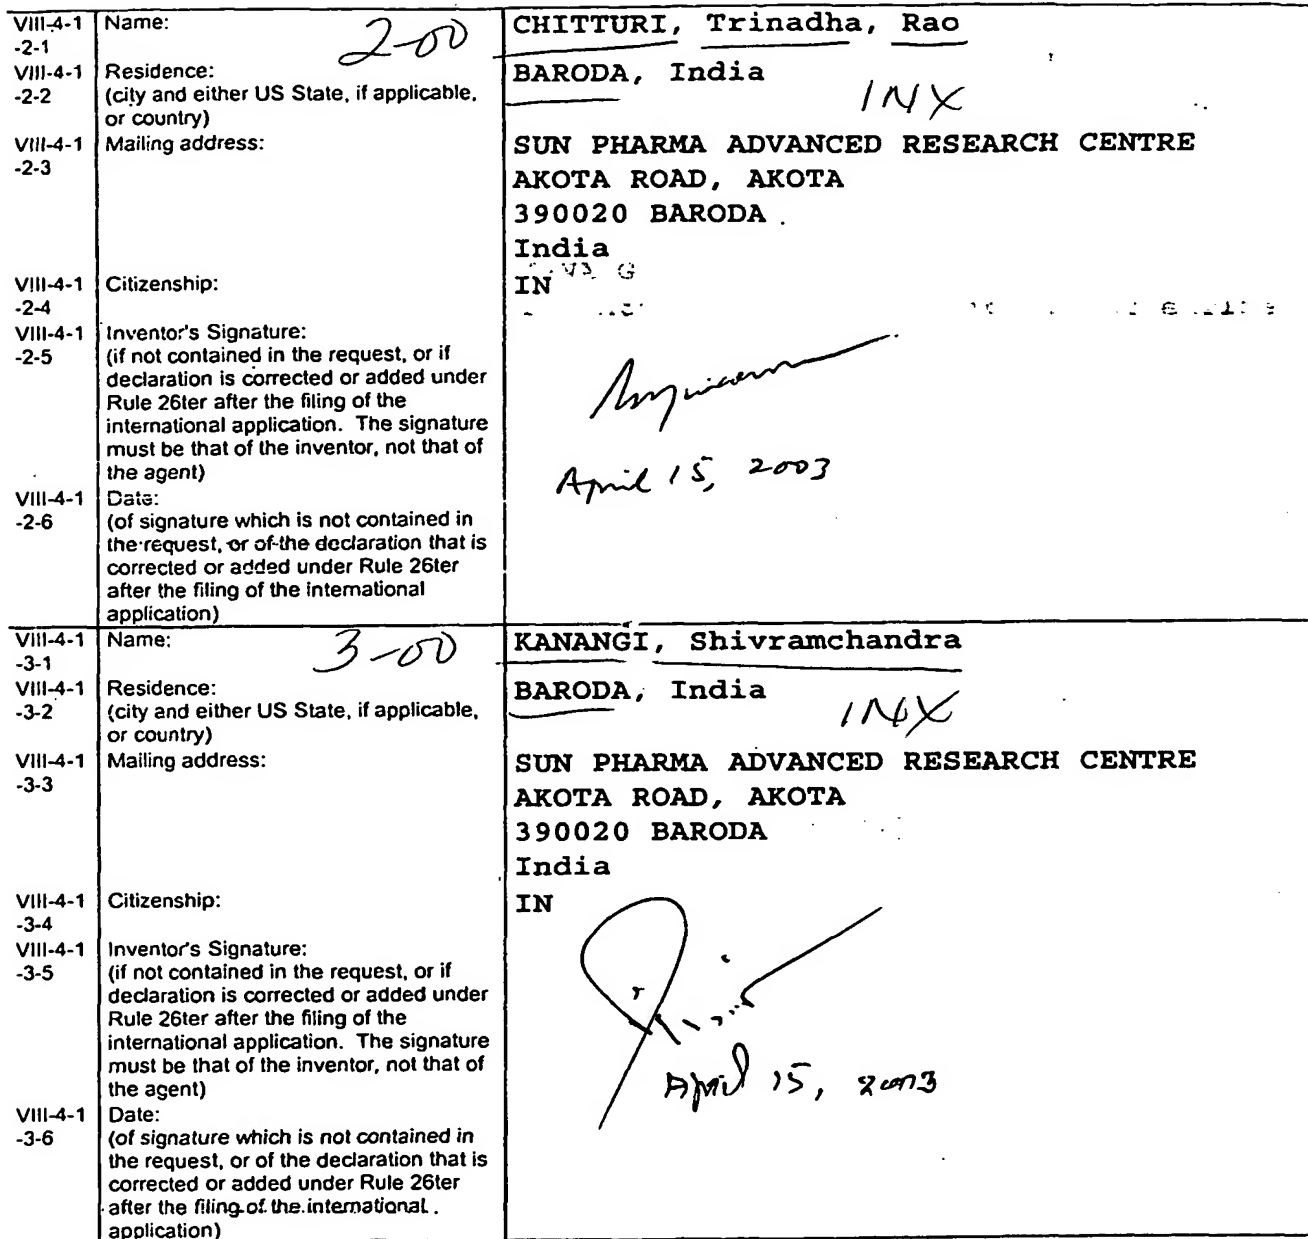 VIII-4-1 Name: 2-00 CHITTURI, Trinadha, Rao
-2-1
VIII-4-1 Residence: BARODA, India
-2-2 (city and either US State, if applicable, INX
or country)
VIII-4-1 Mailing address: SUN PHARMA ADVANCED RESEARCH CENTRE
-2-3 AKOTA ROAD, AKOTA
390020 BARODA
India
VIII-4-1 Citizenship: IN
-2-4
VIII-4-1 Inventor's Signature:
-2-5 (if not contained in the request, or if
declaration is corrected or added under
Rule 26ter after the filing of the
international application. The signature
must be that of the inventor, not that of
the agent) April 15, 2003
VIII-4-1 Date:
-2-6 (of signature which is not contained in
the request, or of the declaration that is
corrected or added under Rule 26ter
after the filing of the international
application)
VIII-4-1 Name: 3-00 KANANGI, Shivramchandra
-3-1
VIII-4-1 Residence: BARODA, India
-3-2 (city and either US State, if applicable, INX
or country)
VIII-4-1 Mailing address: SUN PHARMA ADVANCED RESEARCH CENTRE
-3-3 AKOTA ROAD, AKOTA
390020 BARODA
India
VIII-4-1 Citizenship: IN
-3-4
VIII-4-1 Inventor's Signature:
-3-5 (if not contained in the request, or if
declaration is corrected or added under
Rule 26ter after the filing of the
international application. The signature
must be that of the inventor, not that of
the agent) April 15, 2003
VIII-4-1 Date:
-3-6 (of signature which is not contained in
the request, or of the declaration that is
corrected or added under Rule 26ter
after the filing of the international
application)